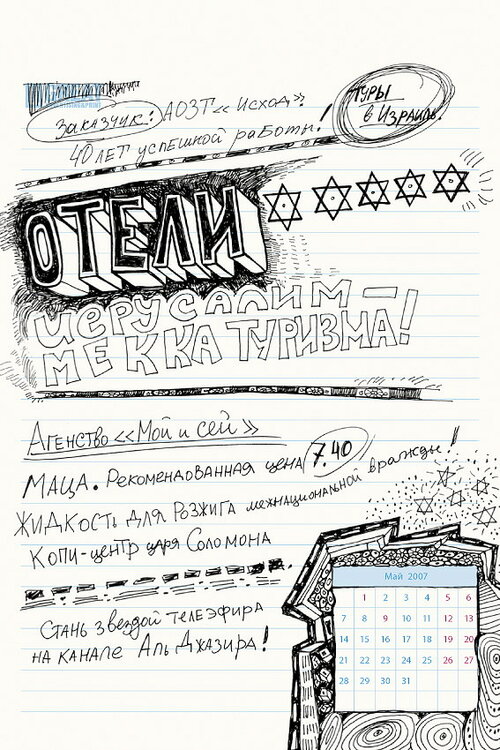 Заказчик: АОЗТ «Исход».
40 лет успешной работы!
Туры
в Израиль.
ОТЕЛИ
ИЕРУСАЛИМ —
МЕККА ТУРИЗМА!
Агенство «Мой и сей»
Маца. Рекомендованная цена 7.40
Жидкость для розжига межнациональной вражды!
Копи-центр царя Соломона
Стань звездой телеэфира
на канале Аль Джазира!
Май 2007
1 2 3 4 5 6
7 8 9 10 11 12 13
14 15 16 17 18 19 20
21 22 23 24 25 26 27
28 29 30 31